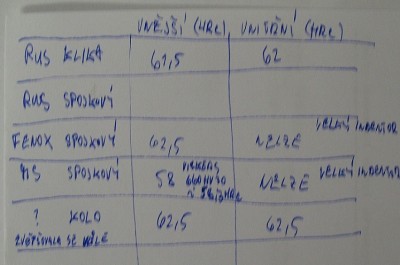 VNĚJŠÍ (HRC) VNITŘNÍ (HRC)
RUS KLIKA 61,5 62
RUS SPOJKOVÝ
VELKÝ INDENTOR
FENOX SPOJKOVÝ 62,5 NELZE
MS SPOJKOVÝ 58 NELZE VELKÝ INDENTOR
660HV30
? KOLO 62,5 62,5
SE VŮLE